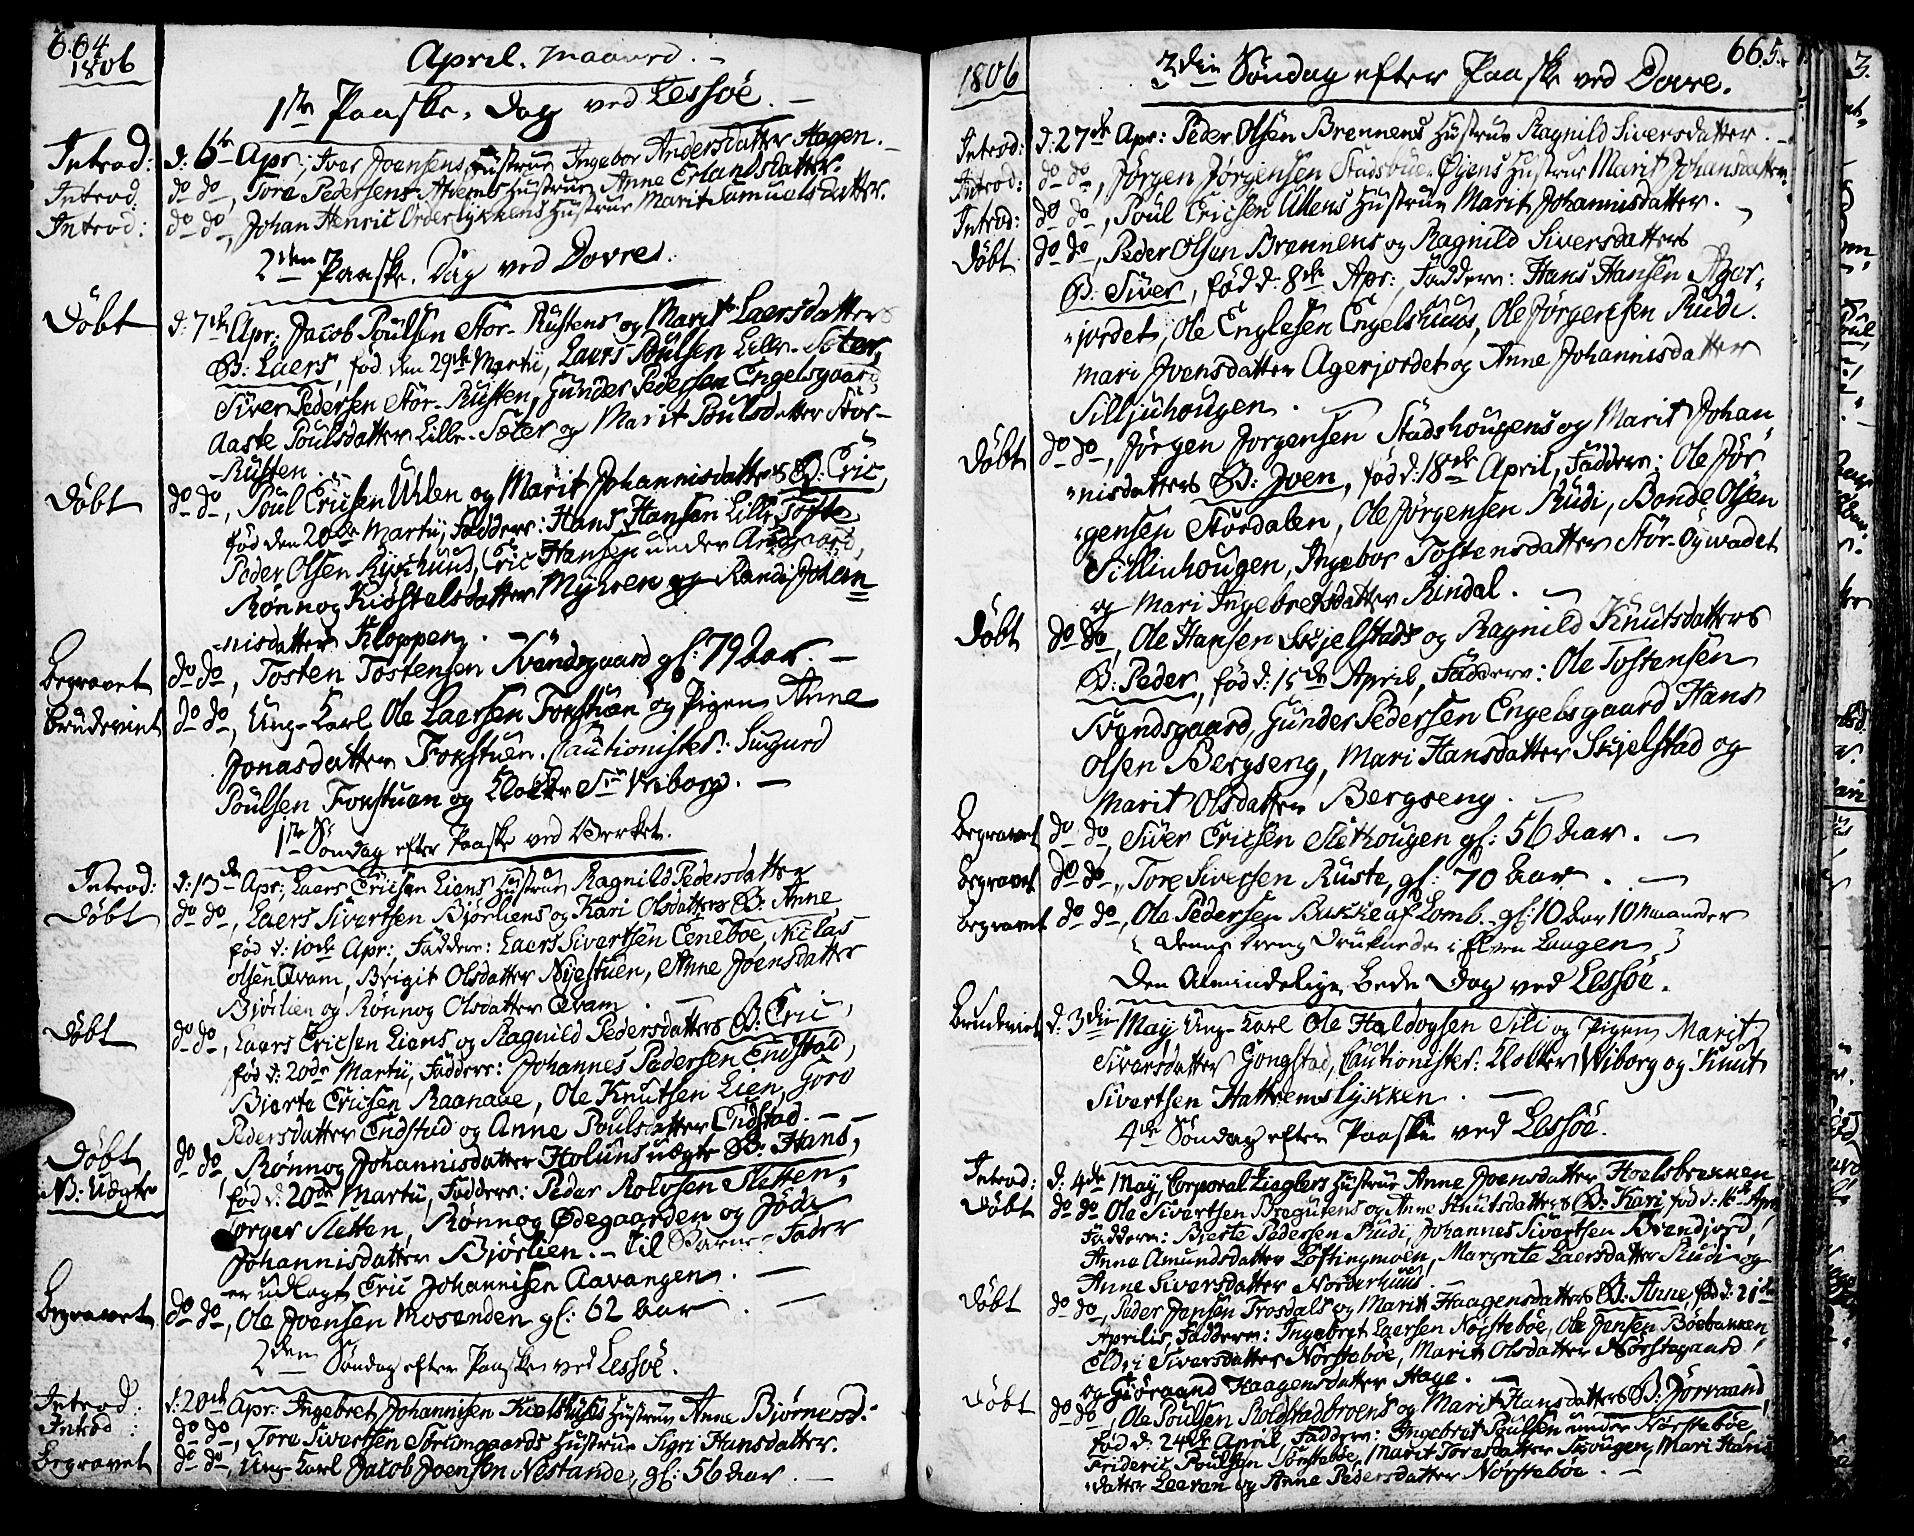 664
1806
April. maaned. -
1ste Paaske. Dag ved Lessöe. -
Introd: d: 6te Apr: Iver Joensens Hustrue Ingebor Andersdatter Hagen. -
Introd: do do, Tore Pedersens Hustrue Anne Erlandsdatter.
Introd: do do, Johan Henric Örderlykkens Hustrue Marit Samuelsdatter.
2den Paaske. Dag ved Dovre.
Döbt d: 7de Apr: Jacob Poulsen Stor-Rustens og Marit Laersdatters
B: Laers, föd den 29de Martii, Laers Poulsen Lille-Sæter,
Siver Pedersen Stor-Rusten, Gunder Pedersen Engelsgaard,
Aaste Poulsdatter Lille-Sæter og Marit Poulsdatter Stor-
-Rusten. -
Döbt do do, Poul Ericsen Uhlen og Marit Johannisdatters B: Eric,
föd den 20de Martii, Faddere: Hans Hansen Lille Tofte
Peder Olsen Ryghuus, Eric Hansen under Andgaard,
Rønnog Kiöstelsdatter Myhren og Randi Johan=
nisdatter Kloppen. -
Begravet do do, Tosten Tostensen Svendsgaard gl: 79 Aar. -
Brudeviet do do, Ung-Karl Ole Laersen Fokstuen og Pigen Anne
Jonasdatter Fokstuen. Cautionister: Sugurd
Poulsen Fokstuen og Klokker Sr Wiborg. -
1ste Söndag efter Paaske ved Verket.
Introd: d: 13de Apr: Laers Ericsen Liens Hustrue Ragnild Pedersdatter
Döbt do do, Laers Sivertsen Bjørliens og Kari Olsdatters B: Anne
föd d: 10de Apr:, Faddere: Laers Sivertsen Eneboe, Niclas
Olsen Qvam, Brigit Olsdatter Nyestuen, Anne Joensdatter
Bjørlien og Rønnog Olsdatter Qvam. -
Döbt do do, Laers Ericsen Liens og Ragnild Pedersdatters B: Eric,
föd d: 20de Martii, Faddere: Johannes Pedersen Endstad,
Bjerte Ericsen Raanaae, Ole Knutsen Lien, Goro
Pedersdatter Endstad og Anne Poulsdatter Endstad. -
Döbt do do, Rønnog Johannisdatter Holuns uægte B: Hans,
N: Uægte föd d: 20de Martii, Faddere: Peder Rolvsen Sletten,
Torger Sletten, Rønnog Ødegaarden og Jödi
Johannisdatter Bjørlien. - Til Barne-Fader
er udlagt Eric Johannisen Aavangen. -
Begravet do do, Ole Joensen Mosenden gl: 62 Aar. -
2den Söndag efter Paaske ved Lessöe.
Introd: d: 20de Apr: Ingebret Johannisen Hustrue Anne Bjørnersd:
Introd: do do, Tore Sivertsen Hustrue Sigri Hansdatter.
Begravet do do, Ung-Karl Jacob Joensen Nestande, gl: 56 Aar. -
665.
1806
3die Söndag efter Paaske ved Dovre.
Introd: d: 27de Apr: Peder Olsen Brennens Hustrue Ragnild Siversdatter. -
Introd: do do, Jørgen Jørgensen Hustrue Marit Johansdatter.
Introd: do do, Poul Ericsen Ullens Hustrue Marit Johannisdatter. -
Döbt do do, Peder Olsen Brennens og Ragnild Siversdatters
B: Siver, föd d: 8de Apr: Faddere: Hans Hansen Ager-
jordet, Ole Englesen Engelshuus, Ole Jørgensen Rudi.
Mari Jvensdatter Agerjordet og Anne Johannisdatter
Silljuhougen. -
Döbt do do, Jørgen Jorgensen Stadshougens og Marit Johan
nisdatters B: Jven, föd d: 18de April, Faddere: Ole Jör
gensen Stördalen, Ole Jørgensen Rudi, Bonde Olsen
Silliuhougen, Ingebor Tostensdatter Stör-Öywadet
og Mari Ingebretsdatter Rindal. -
Döbt do do, Ole Hansen Skjelstads og Ragnild Knutsdatters
B: Peder, föd d: 15de April, Faddere: Ole Tostensen
Svendsgaard, Gunder Pedersen Engelsgaard Hans
Olsen Bergseng, Mari Hansdatter Skjelstad og
Marit Olsdatter Bergseng. -
Begravet do do, Siver Ericsen Slethougen gl: 56 Aar. -
Begravet do do, Tore Siversen Ruste, gl: 70 Aar. -
Begravet do do, Ole Pedersen Bukke af Lomb. gl: 10 Aar 10 Maaneder
( Denne Dreng druknede i Elven Laugen )
Den Almindelige Bede Dag ved Lessöe.
Brudeviet d: 3die May Ung-Karl Ole Haldogsen Sili og Pigen Marit
Siversdatter Gongstad, Cautionister: Klokker Wiborg og Knut
Sivertsen Hattremslykken. -
4de Söndag efter Paaske ved Lessöe.
Introd: d: 4de May, Corporal Zieglers Hustrue Anne Joensdatter Hoelsbrekken
Döbt do do Ole Sivertsen Bregutens og Anne Knutsdatters B: Kari, föd d: 16de April
Faddere: Bjerte Pedersen Rudi, Johannes Sivertsen Brendjord,
Anne Amundsdatter Löftingmoen, Margrite Laersdatter Rudi og
Anne Siversdatter Norderhuus. -
Döbt do do, Peder Jensen Trosdals og Marit Haagensdatters B: Anne, föd d: 21de
Aprilis, Faddere: Ingebret Laersen Nörsteböe, Ole Jensen Böebakken,
Eldri Siversdatter Nörsteböe, Marit Olsdatter Nörstegaard,
og Giöraand Haagensdatter Hage. -
Döbt do do, Ole Poulsen Roldstadbroens og Marit Hansdatters B: Jörraand,
föd d: 24de April, Faddere: Ingebret Poulsen under Nörsteböe
Frideric Poulsen Nörsteböe, Marit Toresdatter Skougen, Mari Hans
datter Leeren og Anne Pedersdatter Nörsteböe. -